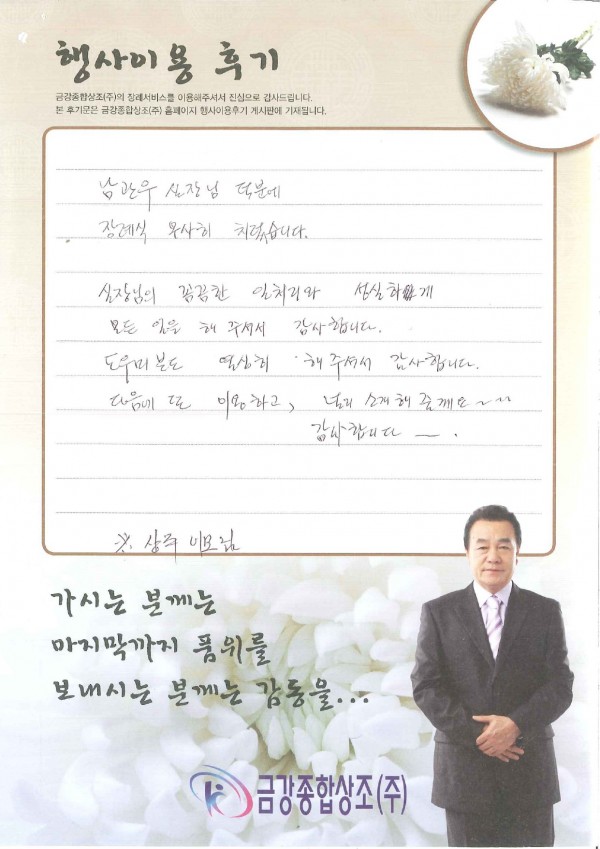 행사이용 후기
금강종합상조(주)의 장례서비스를 이용해주셔서 진심으로 감사드립니다.
본 후기문은 금강종합상조(주) 홈페이지 행사이용후기 게시판에 기재됩니다.
남관우 실장님 덕분에
장례식 무사히 치렀습니다.
실장님의 꼼꼼한 일처리와 성실하게
모든 일을 해 주셔서 감사합니다.
도우미분도 열심히 해 주셔서 감사합니다.
다음에 또 이용하고, 널리 소개해 줄께요~~
감사합니다 ~.
※. 상주 이모님
가시는 분께는
마지막까지 품위를
보내시는 분께는 감동을...
금강종합상조(주)